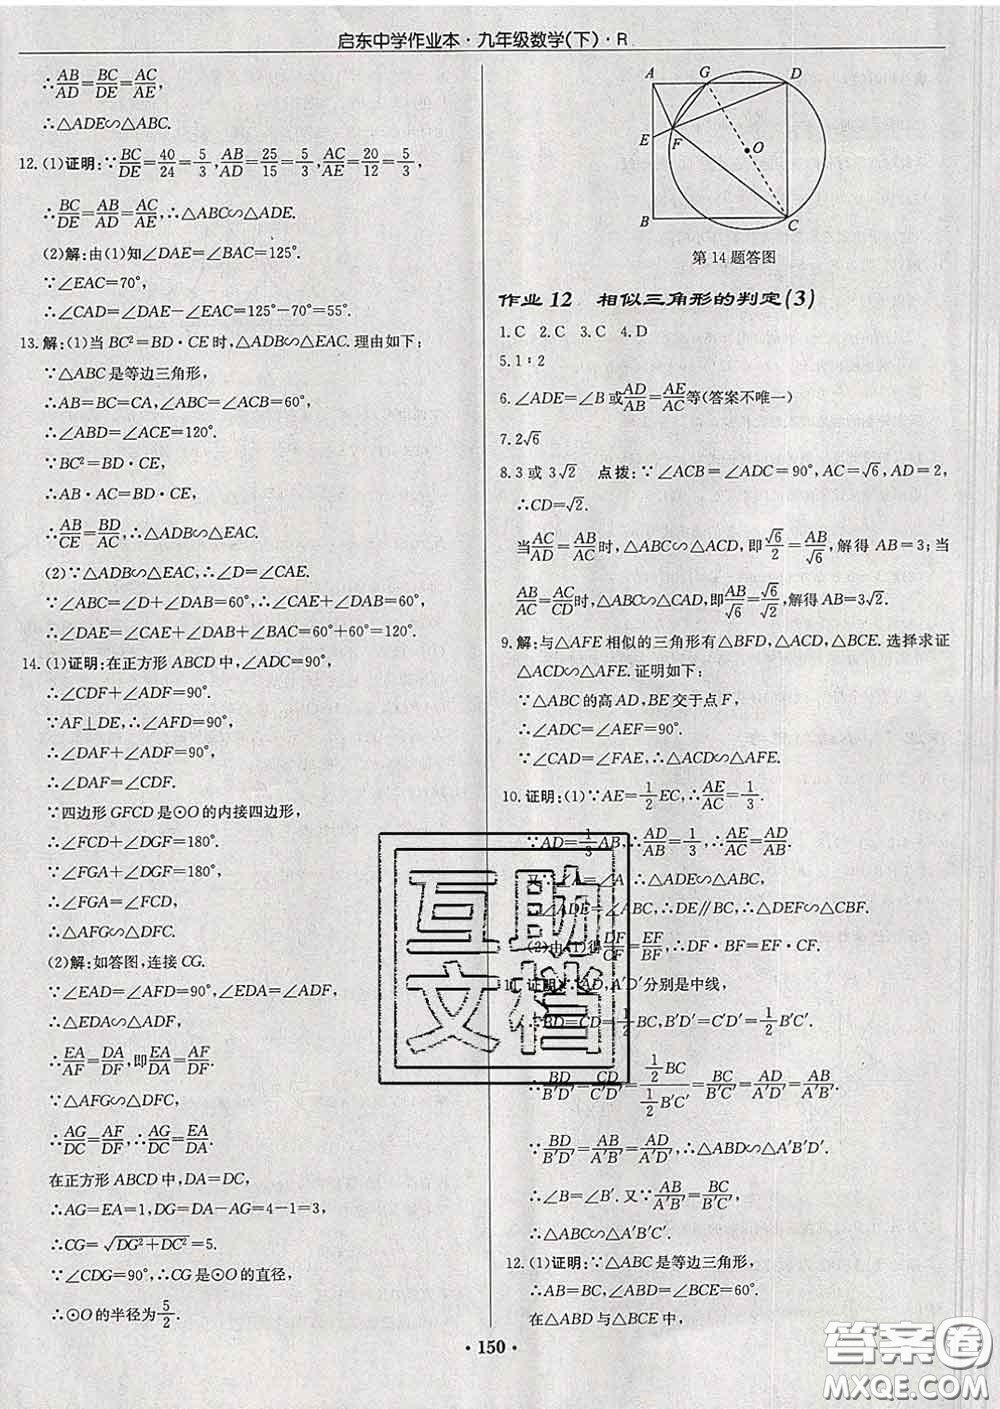 启东中学作业本·九年级数学(下)·R
∴AB/AD=BC/DE=AC/AE,
∴△ADE∽△ABC.
12.(1)证明:∵BC/DE=40/24=5/3,AB/AD=25/15=5/3,AC/AE=20/12=5/3,
∴BC/DE=AB/AD=AC/AE,∴△ABC∽△ADE.
(2)解:由(1)知∠DAE=∠BAC=125°.
∵∠EAC=70°,
∴∠CAD=∠DAE-∠EAC=125°-70°=55°.
13.解:(1)当BC²=BD·CE时,△ADB∽△EAC.理由如下:
∵△ABC是等边三角形,
∴AB=BC=CA,∠ABC=∠ACB=60°,
∴∠ABD=∠ACE=120°.
∵BC²=BD·CE,
∴AB·AC=BD·CE,
∴AB/CE=BD/AC,∴△ADB∽△EAC.
(2)∵△ADB∽△EAC,∴∠D=∠CAE.
∵∠ABC=∠D+∠DAB=60°,∴∠CAE+∠DAB=60°,
∴∠DAE=∠CAE+∠DAB+∠BAC=60°+60°=120°.
14.(1)证明:在正方形ABCD中,∠ADC=90°,
∴∠CDF+∠ADF=90°.
∵AF⊥DE,∴∠AFD=90°,
∴∠DAF+∠ADF=90°,
∴∠DAF=∠CDF.
∵四边形GFCD是⊙O的内接四边形,
∴∠FCD+∠DGF=180°.
∵∠FGA+∠DGF=180°,
∴∠FGA=∠FCD,
∴△AFG∽△DFC.
(2)解:如答图,连接CG.
∵∠EAD=∠AFD=90°,∠EDA=∠ADF,
∴△EDA∽△ADF,
∴EA/AF=DA/DF,即EA/DA=AF/DF.
∵△AFG∽△DFC,
∴AG/DC=AF/DF,∴AG/DC=EA/DA.
在正方形ABCD中,DA=DC,
∴AG=EA=1,DG=DA-AG=4-1=3,
∴CG=√(DG²+DC²)=5.
∵∠CDG=90°,∴CG是⊙O的直径,
∴⊙O的半径为5/2.
A G D
E F O
B C
第14题答图
作业12 相似三角形的判定(3)
1.C 2.C 3.C 4.D
5.1∶2
6.∠ADE=∠B或AD/AB=AE/AC等(答案不唯一)
7.2√6
8.3或3√2 点拨:∵∠ACB=∠ADC=90°,AC=√6,AD=2,
∴CD=√2.
当AC/AD=AB/AC时,△ABC∽△ACD,即√6/2=AB/√6,解得AB=3;当
AB/AC=AC/CD时,△ABC∽△CAD,即AB/√6=√6/√2,解得AB=3√2.
9.解:与△AFE相似的三角形有△BFD,△ACD,△BCE.选择求证
△ACD∽△AFE.证明如下:
∵△ABC的高AD,BE交于点F,
∴∠ADC=∠AEF=90°.
∵∠CAD=∠FAE,∴△ACD∽△AFE.
10.证明:(1)∵AE=1/2EC,∴AE/AC=1/3.
∵AD=1/3AB,∴AD/AB=1/3,∴AE/AC=AD/AB.
又∵∠A=∠A,∴△ADE∽△ABC,
∴∠ADE=∠ABC,∴DE∥BC,∴△DEF∽△CBF.
(2)由(1)得DF/CF=EF/BF,∴DF·BF=EF·CF.
11.证明:∵AD,A′D′分别是中线,
∴BD=CD=1/2BC,B′D′=C′D′=1/2B′C′.
∴BD/B′D′=CD/C′D′=1/2BC/1/2B′C′=BC/B′C′=AD/A′D′=AB/A′B′.
∵BD/B′D′=AB/A′B′=AD/A′D′,∴△ABD∽△A′B′D′.
∴∠B=∠B′.又∵AB/A′B′=BC/B′C′,
∴△ABC∽△A′B′C′.
12.(1)证明:∵△ABC是等边三角形,
∴AB=BC,∠ABD=∠BCE=60°.
在△ABD与△BCE中,
·150·
互助
文档
答案卷
MXQE.COM